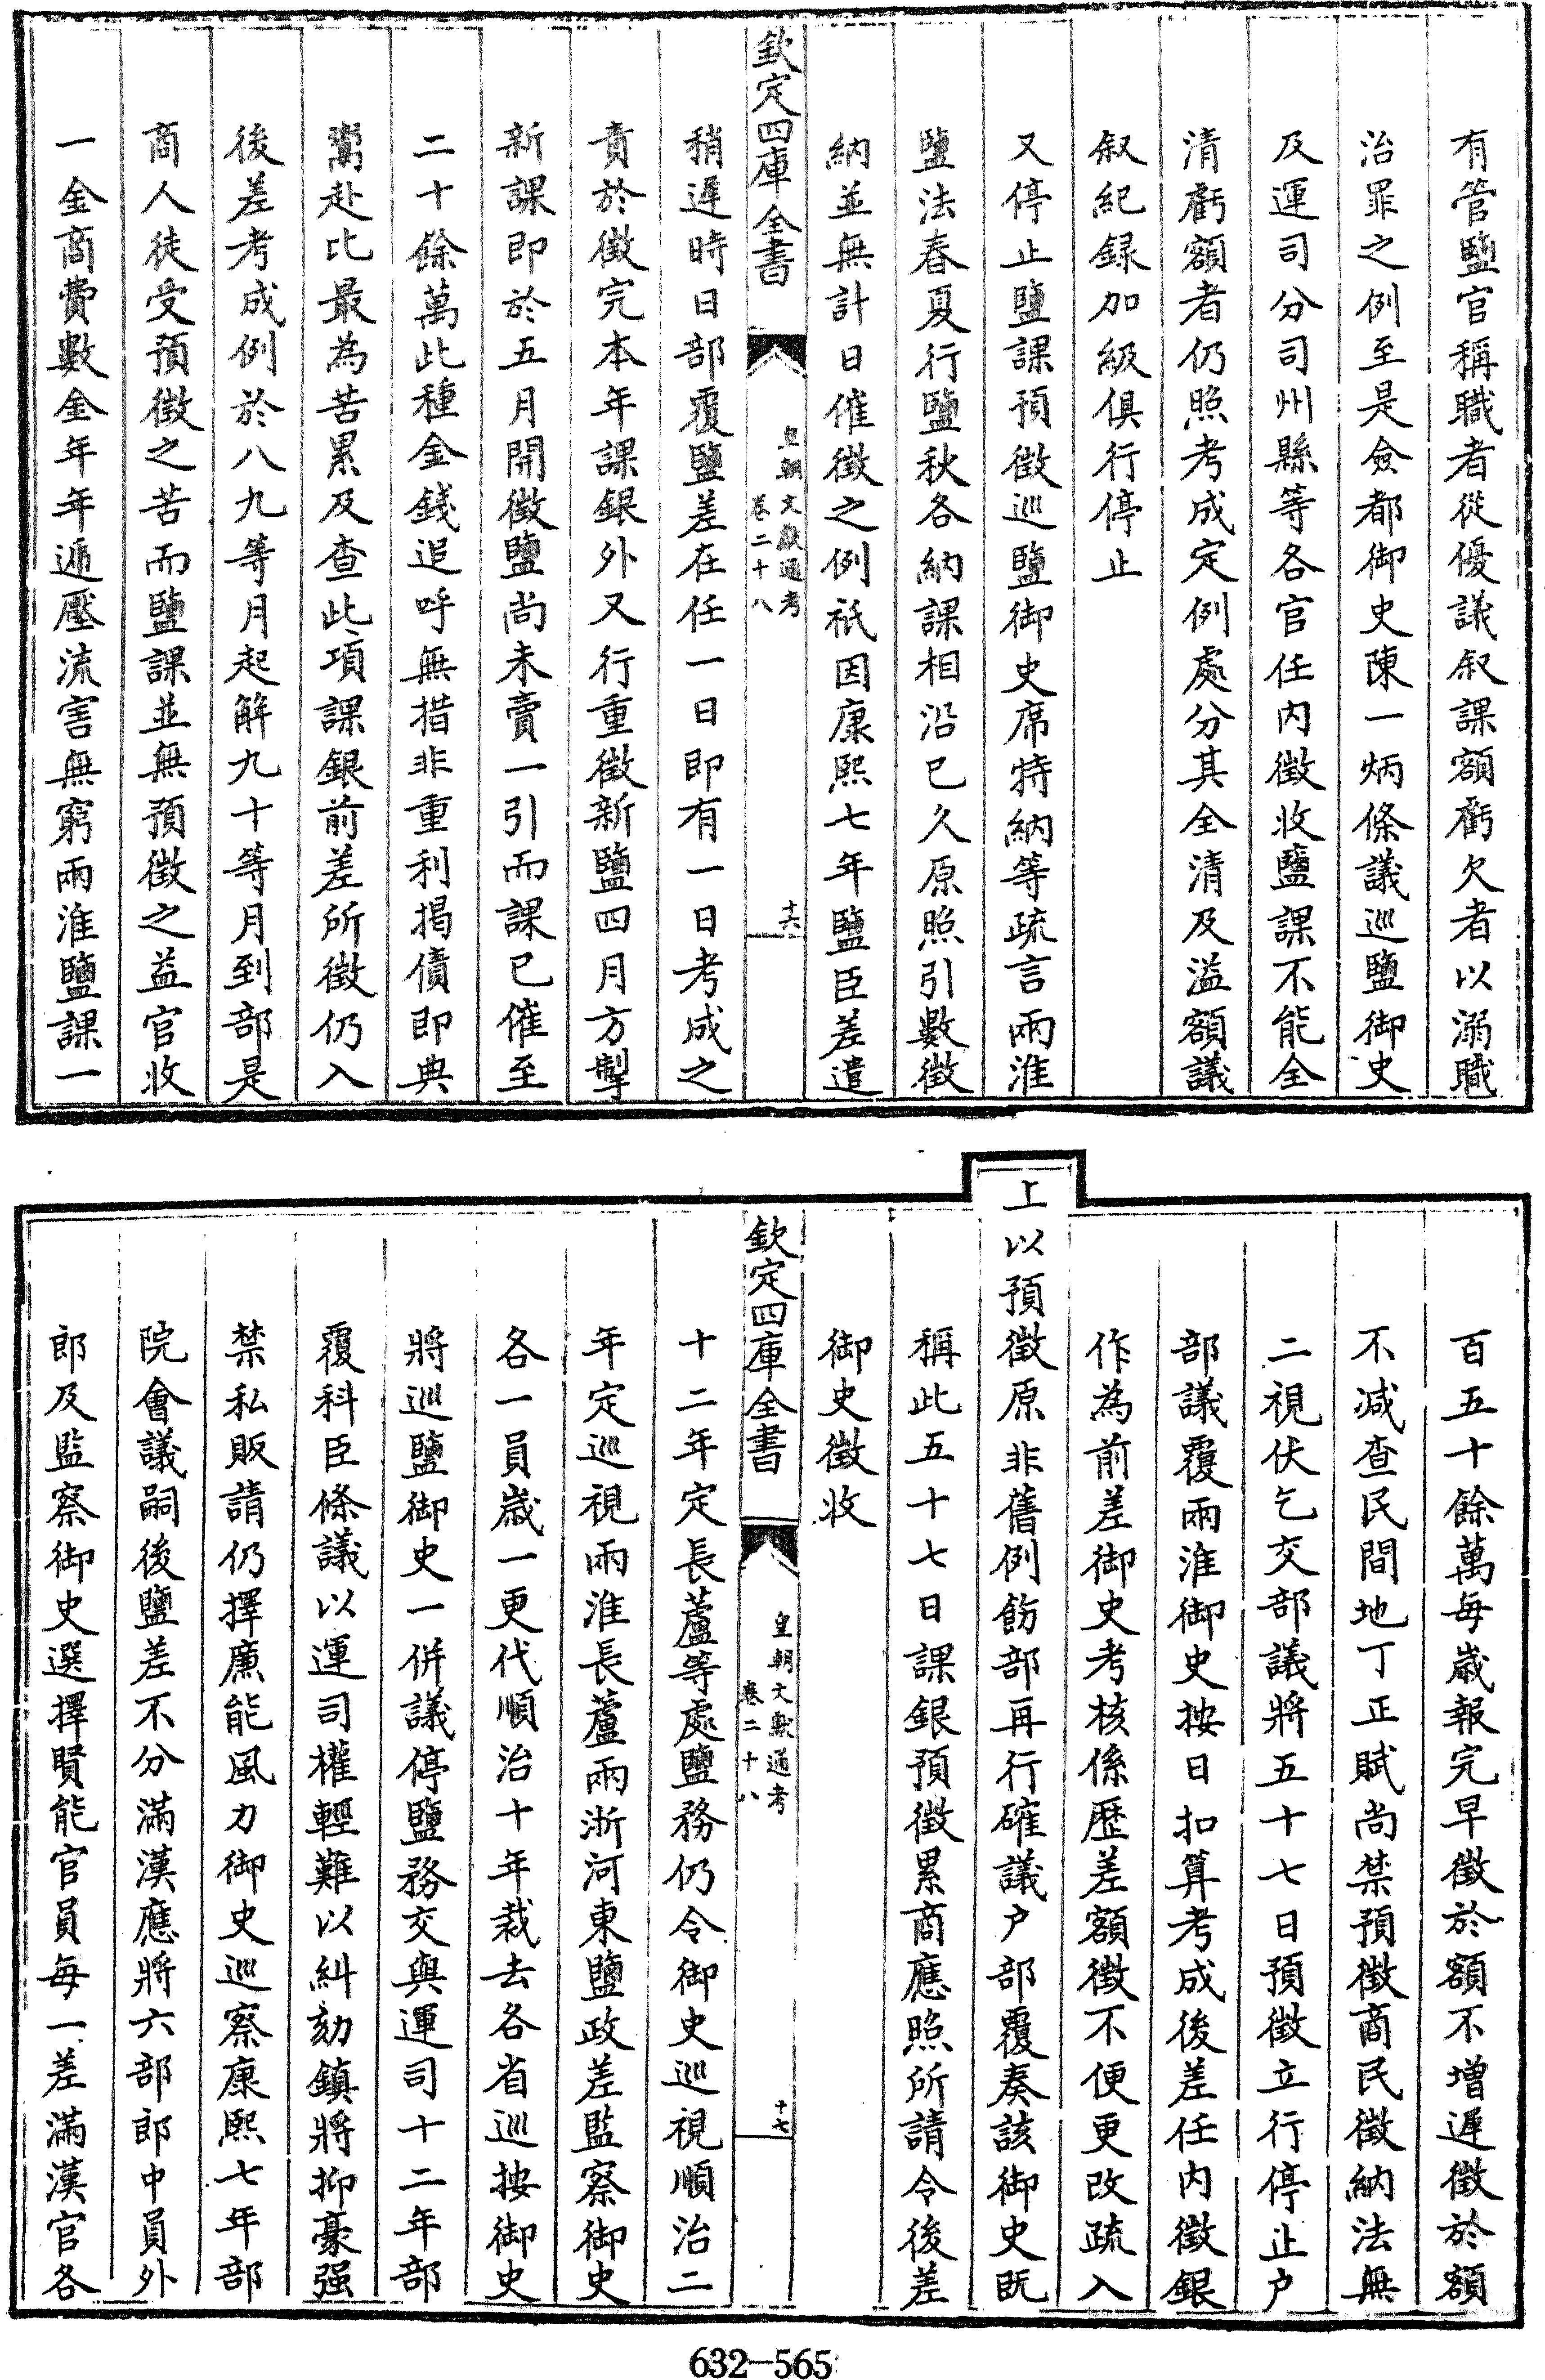 有管鹽官稱職者從優議叙課額虧欠者以溺職
治罪之例至是僉都御史陳一炳條議巡鹽御史
及運司分司州縣等各官任内徵收鹽課不能全
清虧額者仍照考成定例處分其全清及溢額議
叙紀録加級俱行停止
又停止鹽課預徵巡鹽御史席特納等疏言兩淮
鹽法春夏行鹽秋各納課相沿已久原照引數徵
納並無計日催徵之例祇因康熙七年鹽臣差遣
欽定四庫全書
皇朝文獻通考
卷二十八
十六
稍遲時日部覆鹽差在任一日即有一日考成之
責於徵完本年課銀外又行重徵新鹽四月方掣
新課即於五月開徵鹽尚未賣一引而課已催至
二十餘萬此種金錢追呼無措非重利揭債即典
鬻赴比最為苦累及查此項課銀前差所徵仍入
後差考成例於八九等月起解九十等月到部是
商人徒受預徵之苦而鹽課並無預徵之益官收
一金商費數金年年遞壓流害無窮兩淮鹽課一
百五十餘萬每歲報完早徵於額不增遲徵於額
不減查民間地丁正賦尚禁預徵商民徵納法無
二視伏乞交部議將五十七日預徵立行停止户
部議覆兩淮御史按日扣算考成後差任内徵銀
作為前差御史考核係歷差額徵不便更改疏入
上以預徵原非舊例飭部再行確議户部覆奏該御史既
稱此五十七日課銀預徵累商應照所請令後差
御史徵收
欽定四庫全書
皇朝文獻通考
卷二十八
十七
十二年定長蘆等處鹽務仍令御史巡視順治二
年定巡視兩淮長蘆兩浙河東鹽政差監察御史
各一員歲一更代順治十年裁去各省巡按御史
將巡鹽御史一併議停鹽務交與運司十二年部
覆科臣條議以運司權輕難以糾劾鎮將抑豪强
禁私販請仍擇廉能風力御史巡察康熙七年部
院會議嗣後鹽差不分滿漢應將六部郎中員外
郎及監察御史選擇賢能官員每一差滿漢官各
632-565